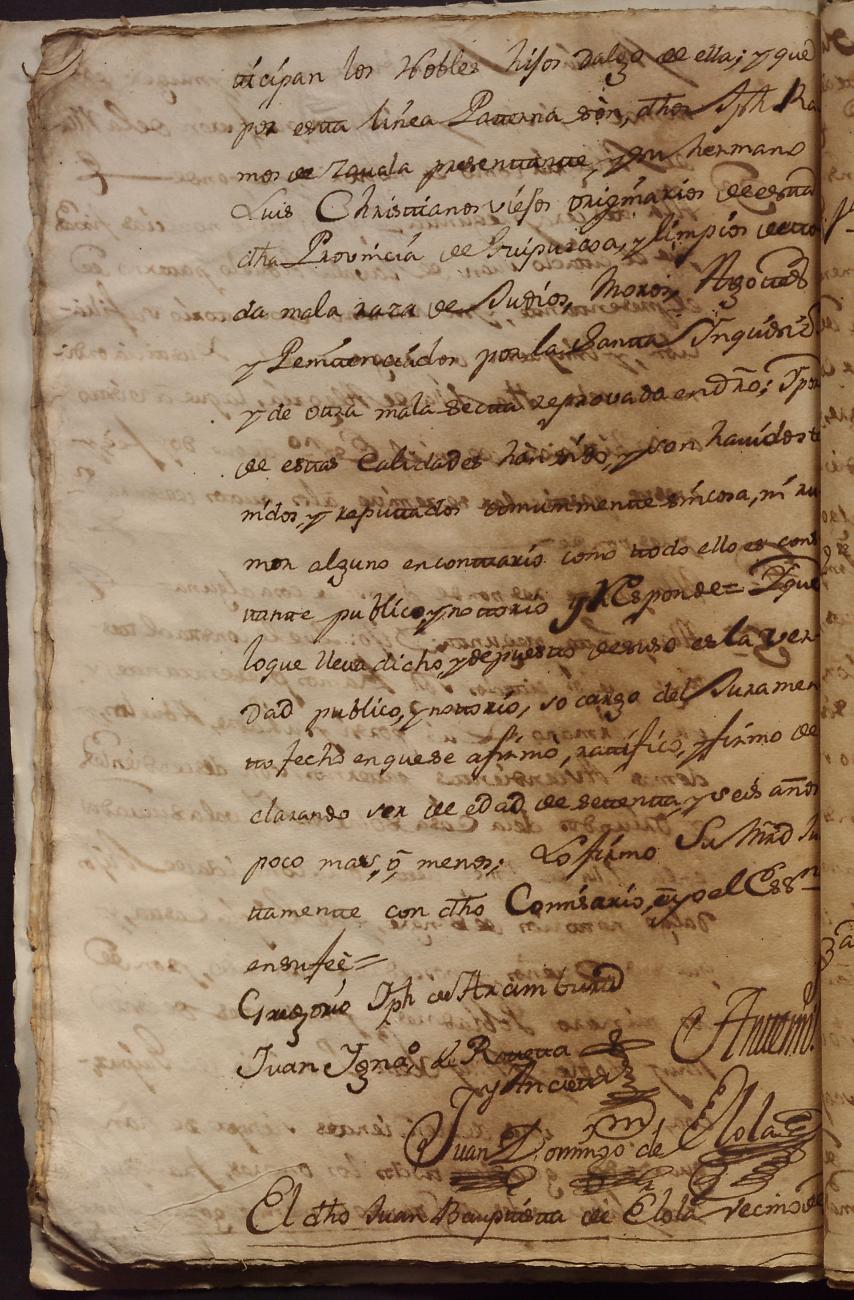 ticipan los Nobles hijos dalgo de ella; y que
por esta línea Paterna son, dhos Jph Ra
mos de Zauala presentante, y su hermano
Luis Christianos viejos originarios de esta
dha Provincia de Guipuzcoa, y limpios de to
da mala raza de Judios, Moros, Agotes
y Penitenciados por la Santa Inquisición
y de otra mala secta reprovada en Dro; Y por
de estas Calidades han sido, y son havidos te
nidos, y reputados comunmente sin cosa, ni ru
mor alguno en contrario como todo ello es cons
tante publico y notorio y Responde= Y que
lo que lleva dicho, y depuesto de suso es la ver
dad publico, y notorio, so cargo del Juramen
to fecho en que se afirmo, ratifico, y firmo de
clarando ser de edad de setenta y seis años
poco mas, o menos; Lo firmo Su Mrd Ju
ntamente con dho Comisario, e yo el Essno
en su feè=
Gregorio Jph de Aramburu
Juan Ygnaº de Rouetta
y Ancieta
Antemi
Juan Domingo de Elola
El dho Juan Bauptista de Elola vecino de